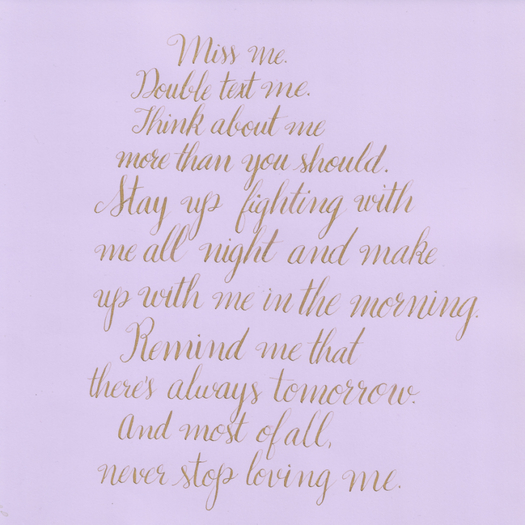 Miss me.
Double text me.
Think about me
more than you should.
Stay up fighting with
me all night and make
up with me in the morning.
Remind me that
there's always tomorrow.
And most of all,
never stop loving me.